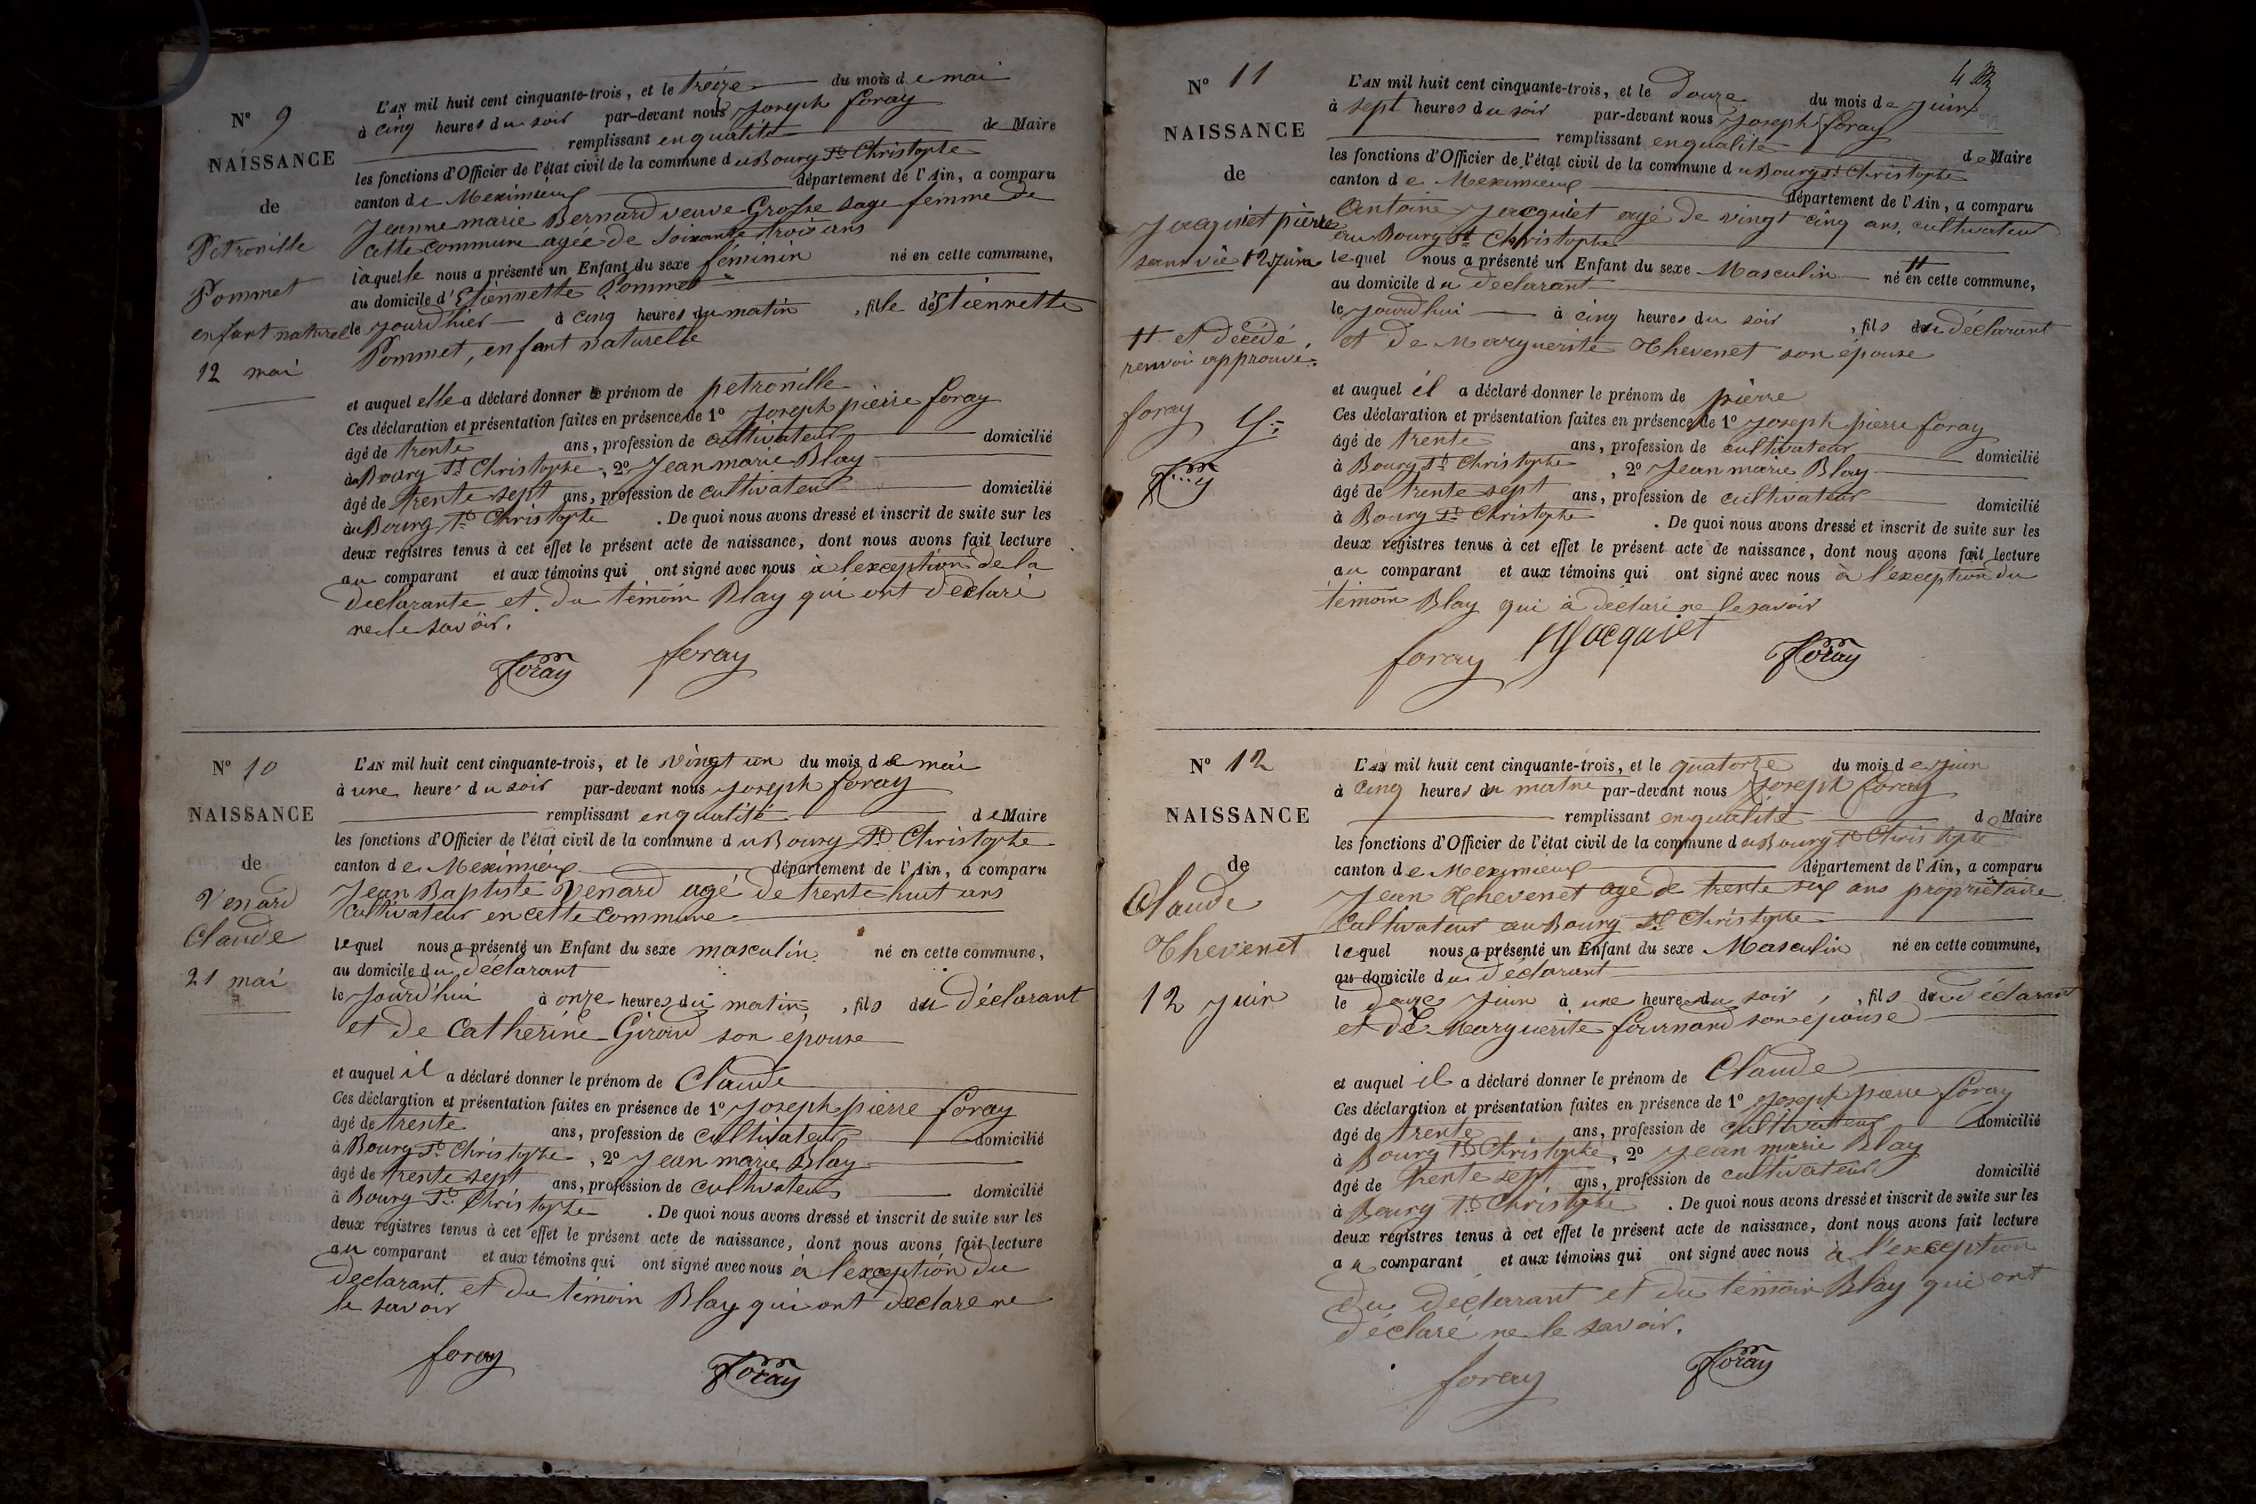 N° 9
NAISSANCE
de
Petronille
Pommet
enfant naturel
12 mai
L'AN mil huit cent cinquante-trois, et le treize du mois de mai
à cinq heures du soir par-devant nous Joseph foray
remplissant en qualité de Maire
les fonctions d'Officier de l'état civil de la commune du Bourg St Christophe
canton de Meximieux département de l'Ain, a comparu
Jeanne marie Bernard veuve Grosse sage femme de
cette commune agée de soixante trois ans
laquelle nous a présenté un Enfant du sexe féminin né en cette commune,
au domicile d'Etiennette Pommet
le jourd'hier à cinq heures du matin, fille d'Etiennette
Pommet, enfant naturelle
et auquel elle a déclaré donner le prénom de petronille
Ces déclaration et présentation faites en présence de 1° Joseph pierre foray
âgé de trente ans, profession de cultivateur domicilié
au Bourg St Christophe, 2° Jean marie Blay
âgé de trente sept ans, profession de cultivateur domicilié
au Bourg St Christophe. De quoi nous avons dressé et inscrit de suite sur les
deux registres tenus à cet effet le présent acte de naissance, dont nous avons fait lecture
au comparant et aux témoins qui ont signé avec nous à l'exception de la
declarante et du témoin Blay qui ont déclaré
ne le savoir.
foray foray
N° 10
NAISSANCE
de
Venard
Claude
21 mai
L'AN mil huit cent cinquante-trois, et le vingt un du mois de mai
à une heure du soir par-devant nous Joseph foray
remplissant en qualité de Maire
les fonctions d'Officier de l'état civil de la commune du Bourg St Christophe
canton de Meximieux département de l'Ain, a comparu
Jean Baptiste Venard agé de trente huit ans
cultivateur en cette commune
lequel nous a présenté un Enfant du sexe masculin né en cette commune,
au domicile du déclarant
le Jourd'hui à onze heures du matin, fils du déclarant
et de Catherine Giroud son épouse
et auquel il a déclaré donner le prénom de Claude
Ces déclaration et présentation faites en présence de 1° Joseph pierre foray
âgé de trente ans, profession de cultivateur domicilié
à Bourg St Christophe, 2° Jean marie Blay
âgé de trente sept ans, profession de cultivateur domicilié
à Bourg St Christophe. De quoi nous avons dressé et inscrit de suite sur les
deux registres tenus à cet effet le présent acte de naissance, dont nous avons fait lecture
au comparant et aux témoins qui ont signé avec nous a l'exception du
declarant et du témoin Blay qui ont declare ne
le savoir
foray foray
4
N° 11
NAISSANCE
de
Jacquiet pierre
sans vie 12 Juin
et décédé,
renvoi approuvé
foray
L'AN mil huit cent cinquante-trois, et le douze du mois de juin
à sept heures du soir par-devant nous Joseph foray
remplissant en qualité de Maire
les fonctions d'Officier de l'état civil de la commune du Bourg St Christophe
canton de Meximieux département de l'Ain, a comparu
Antoine Jacquiet agé de vingt cinq ans, cultivateur
au Bourg St Christophe
lequel nous a présenté un Enfant du sexe Masculin né en cette commune,
au domicile du déclarant
le jourd'hui à cinq heures du soir, fils du déclarant
et de Marguerite Thevenet son épouse
et auquel il a déclaré donner le prénom de pierre
Ces déclaration et présentation faites en présence de 1° Joseph pierre foray
âgé de trente ans, profession de cultivateur domicilié
à Bourg St Christophe, 2° Jean marie Blay
âgé de trente sept ans, profession de cultivateur domicilié
à Bourg St Christophe. De quoi nous avons dressé et inscrit de suite sur les
deux registres tenus à cet effet le présent acte de naissance, dont nous avons fait lecture
au comparant et aux témoins qui ont signé avec nous à l'exception du
témoin Blay qui à déclaré ne le savoir
foray Jacquiet foray
N° 12
NAISSANCE
de
Claude
Thevenet
12 Juin
L'AN mil huit cent cinquante-trois, et le quatorze du mois de juin
à cinq heures du matin par-devant nous Joseph foray
remplissant en qualité de Maire
les fonctions d'Officier de l'état civil de la commune du Bourg St Christophe
canton de Meximieux département de l'Ain, a comparu
Jean Thevenet agé de trente six ans propriétaire
Cultivateur au Bourg St Christophe
lequel nous a présenté un Enfant du sexe Masculin né en cette commune,
au domicile du déclarant
le douze Juin à une heure du soir, fils du déclarant
et de Marguerite fournand son épouse
et auquel il a déclaré donner le prénom de Claude
Ces déclaration et présentation faites en présence de 1° Joseph pierre foray
âgé de trente ans, profession de cultivateur domicilié
à Bourg St Christophe, 2° Jean marie Blay
âgé de trente sept ans, profession de cultivateur domicilié
à Bourg St Christophe. De quoi nous avons dressé et inscrit de suite sur les
deux registres tenus à cet effet le présent acte de naissance, dont nous avons fait lecture
au comparant et aux témoins qui ont signé avec nous à l'exception
du déclarant et du témoin Blay qui ont
déclaré ne le savoir.
foray foray